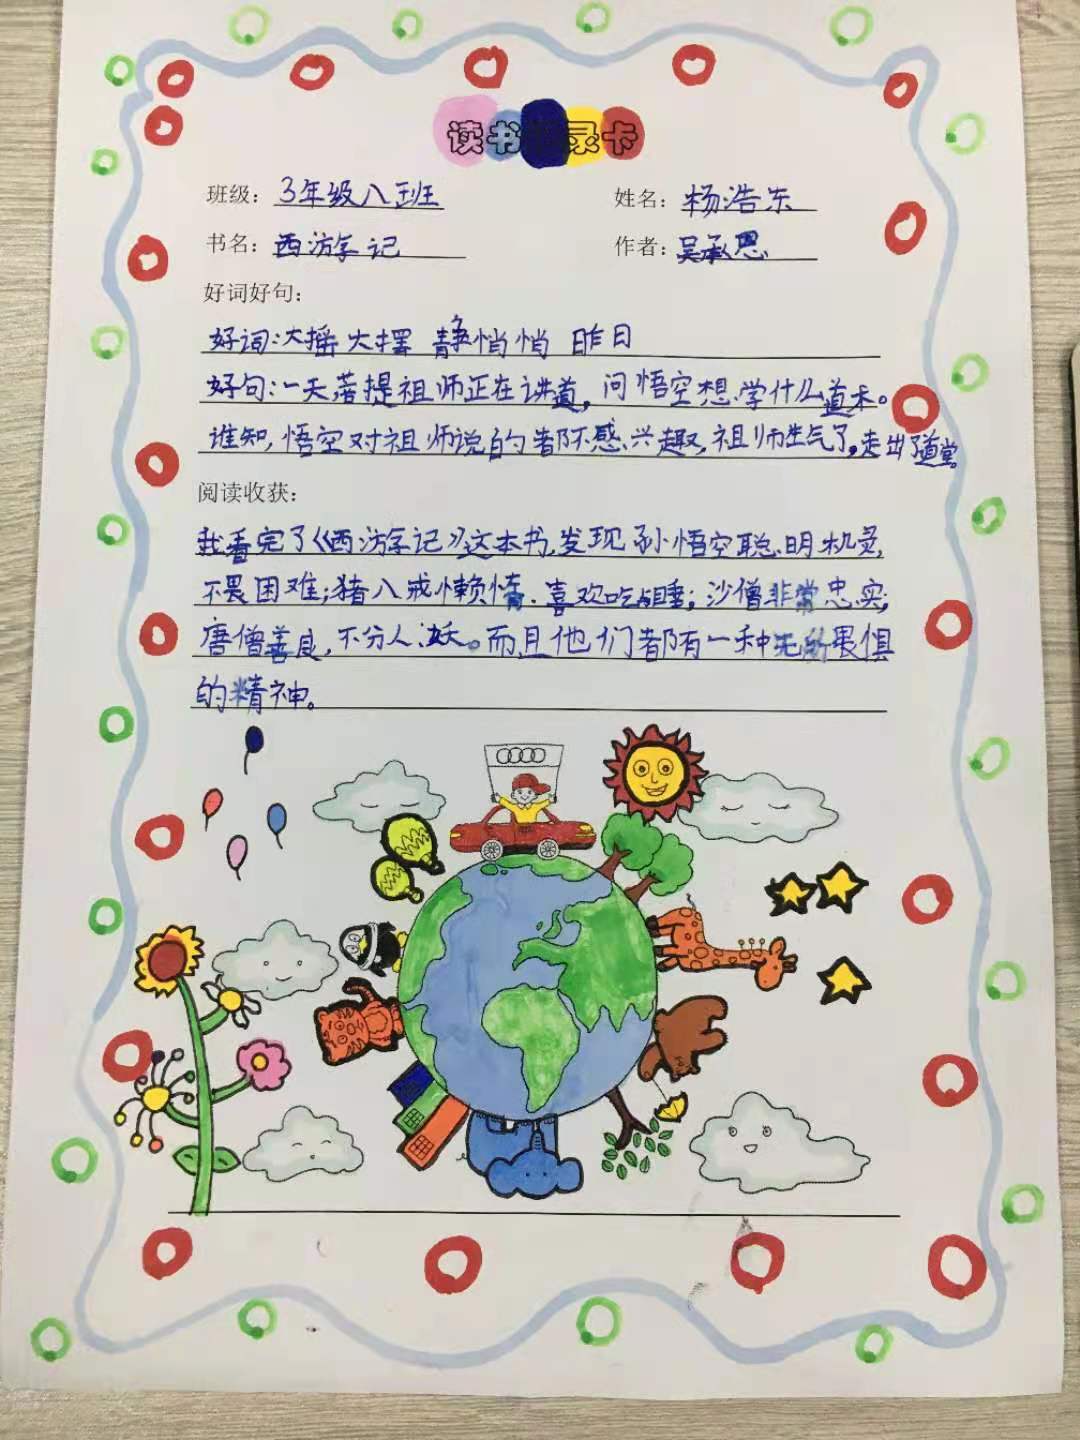 读书记录卡
班级：3年级八班 姓名：杨浩东
书名：西游记 作者：吴承恩
好词好句：
好词：大摇大摆 静悄悄 昨日
好句：一天，菩提祖师正在讲道，问悟空想学什么道术。
谁知，悟空对祖师说的都不感兴趣，祖师生气了，走出了道堂。
阅读收获：
我看完了《西游记》这本书，发现孙悟空聪明机灵，
不畏困难；猪八戒懒惰、喜欢吃睡；沙僧非常忠实；
唐僧善良，不分人、妖。而且他们都有一种无所畏惧
的精神。